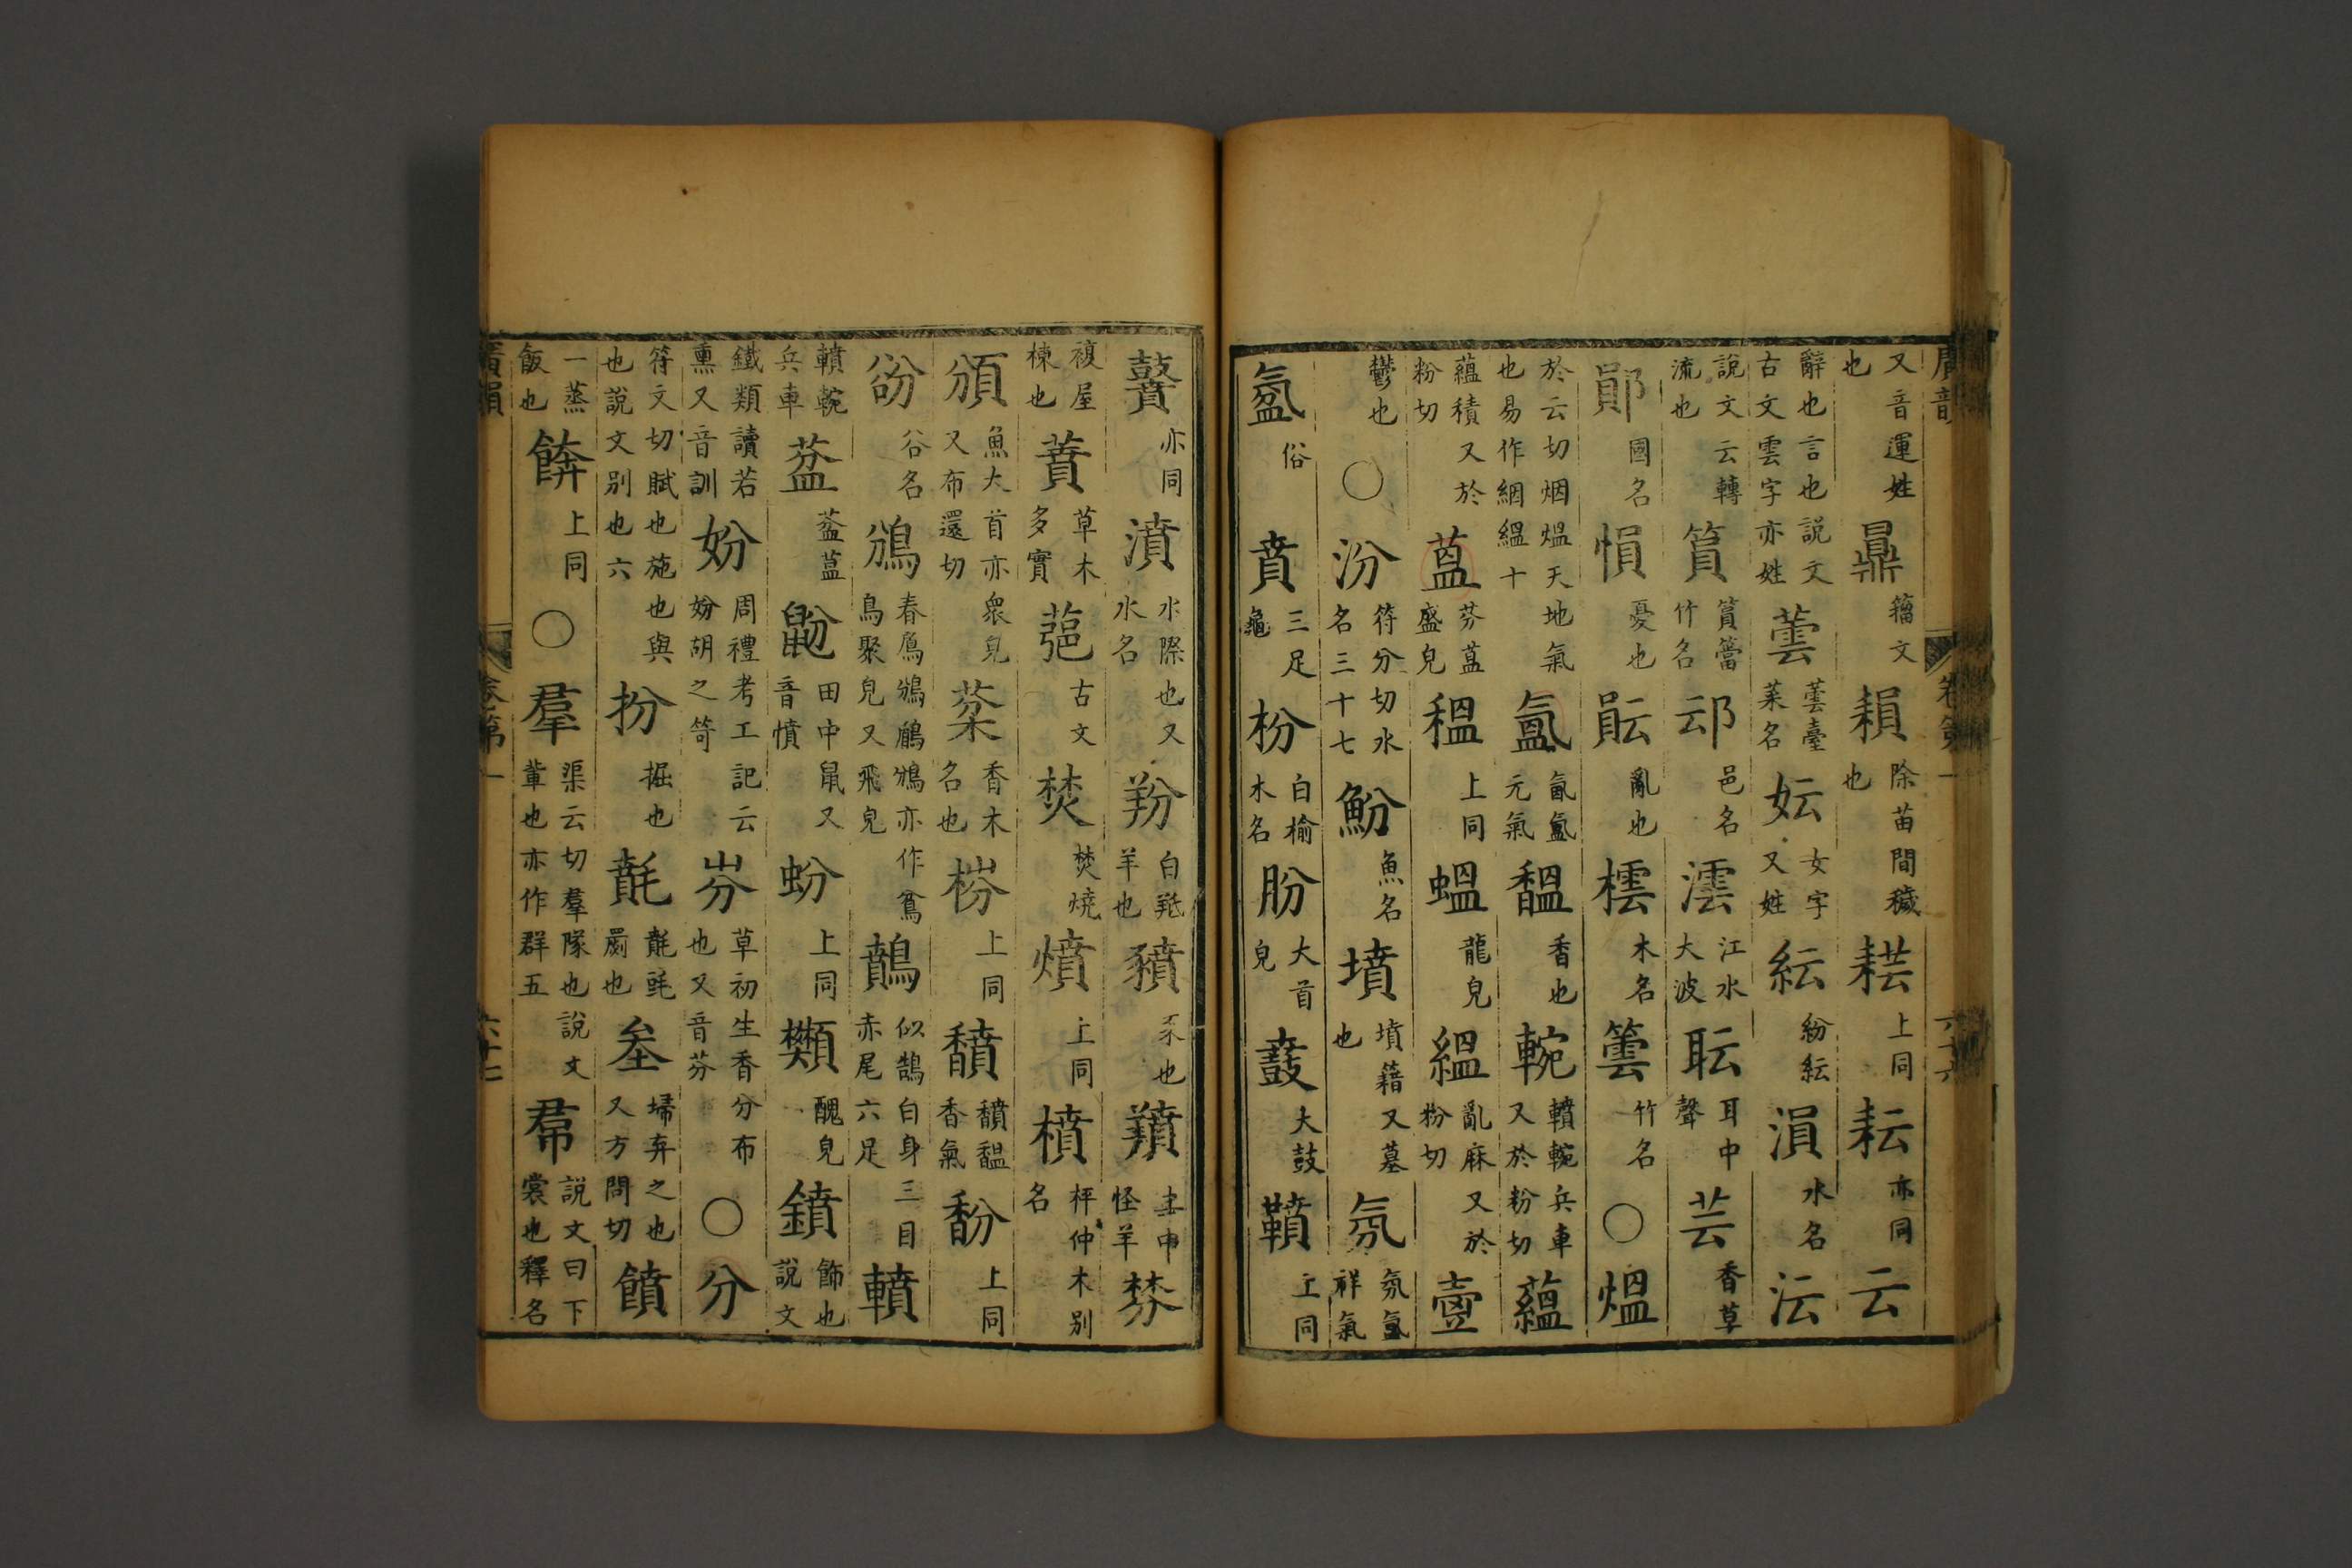 廣韻 卷第一 六十六
又音運姓也 鼎籀文 䢵除苗間穢也 䎣上同 耘亦同 云
辭也言也說文古文雲字亦姓 蕓蕓臺菜名 妘女字又姓 紜紛紜 溳水名 沄
說文云轉流也 篔篔簹竹名 邧邑名 澐江水大波 耺耳中聲 芸香草
鄖國名 愪憂也 䝟亂也 橒木名 䉙竹名 ○ 熅
於云切烟熅天地氣也易作絪縕十 氳氤氳元氣 馧香也 輓轒輓兵車又於粉切 蘊
蘊積又於粉切 葐芬葐盛皃 䅼上同 蝹龍皃 縕亂麻又於粉切 壼
鬱也 ○ 汾符分切水名三十七 魵魚名 墳墳籍又墓也 氛氛氳祥氣
氳俗 賁三足龜 枌白榆木名 肦大首皃 鼖大鼓 鞼上同
鼖亦同 濆水際也又水名 羒白羝羊也 豶豕也 羵土中怪羊 棼
複屋棟也 蕡草木多實 蘟古文 焚焚燒 燌上同 橨枰仲木別名
頒魚大首亦眾皃又布還切 棻香木名也 梤上同 馩馩馧香氣 馚上同
㟗谷名 鳻春鳸鳻鶞鳻亦作鳸鳥聚皃又飛皃 鷷似鵲白身三目赤尾六足 轒
轒輓兵車 葐葐蒀 鼢田中鼠又音憤 蚡上同 䫶醜皃 鐼飾也說文
鐵類讀若熏又音訓 妢周禮考工記云妢胡之笴 岎草初生香分布也又音芬 ○ 分
符文切賦也施也與也說文別也六 扮握也 㲊㲊㲈罽也 坌埽弃之也又方問切 饙
一蒸飯也 餴上同 ○ 羣渠云切羣隊也說文輩也亦作群五 帬說文曰下裳也釋名
廣韻 卷第一 六十七